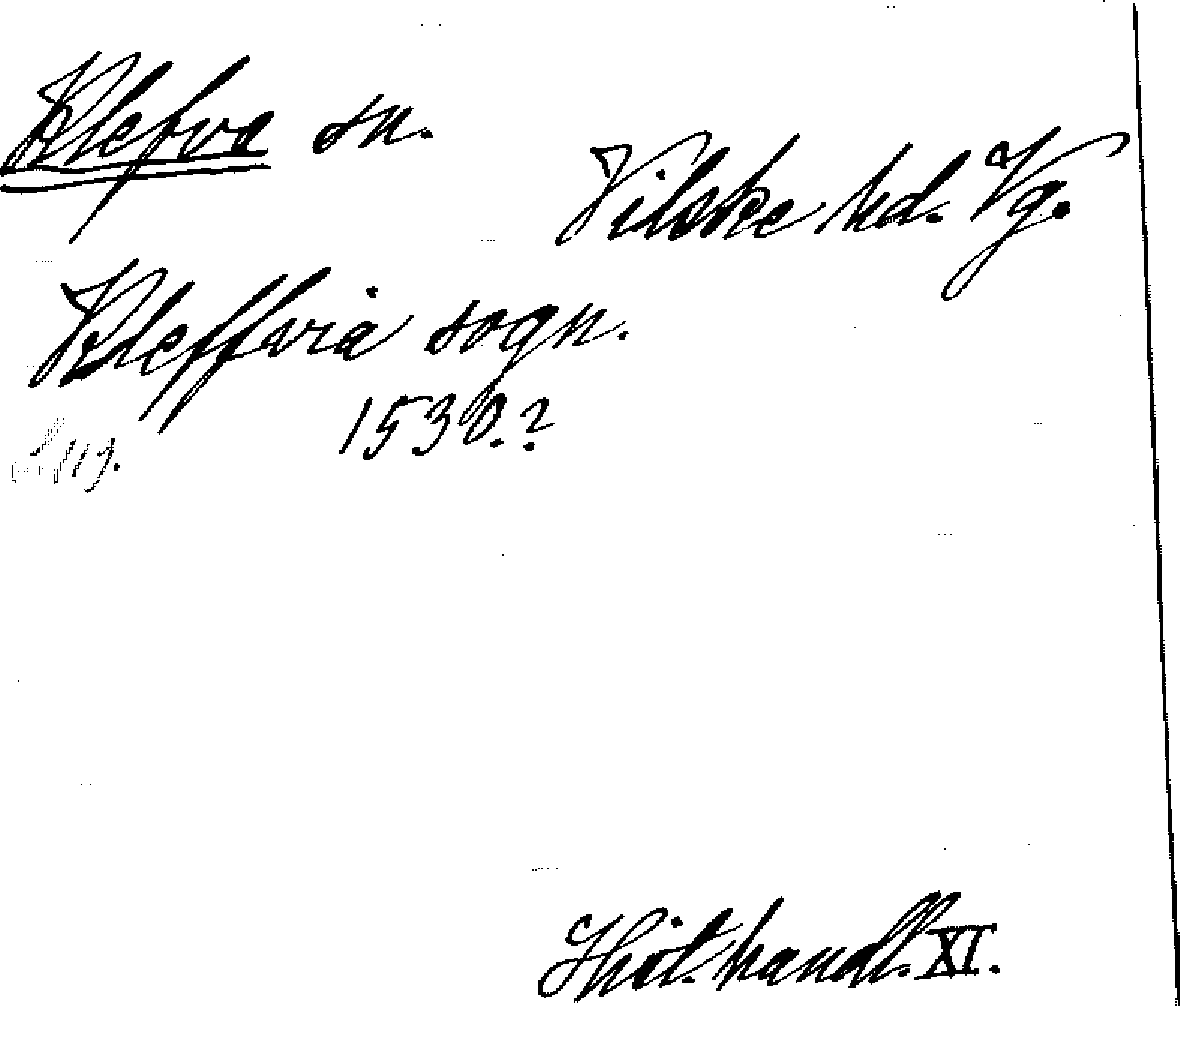 Klefva sn.
Vilske hd. Vg.
Kleffwa sogn.
1530.?
Hist. handl. XI.